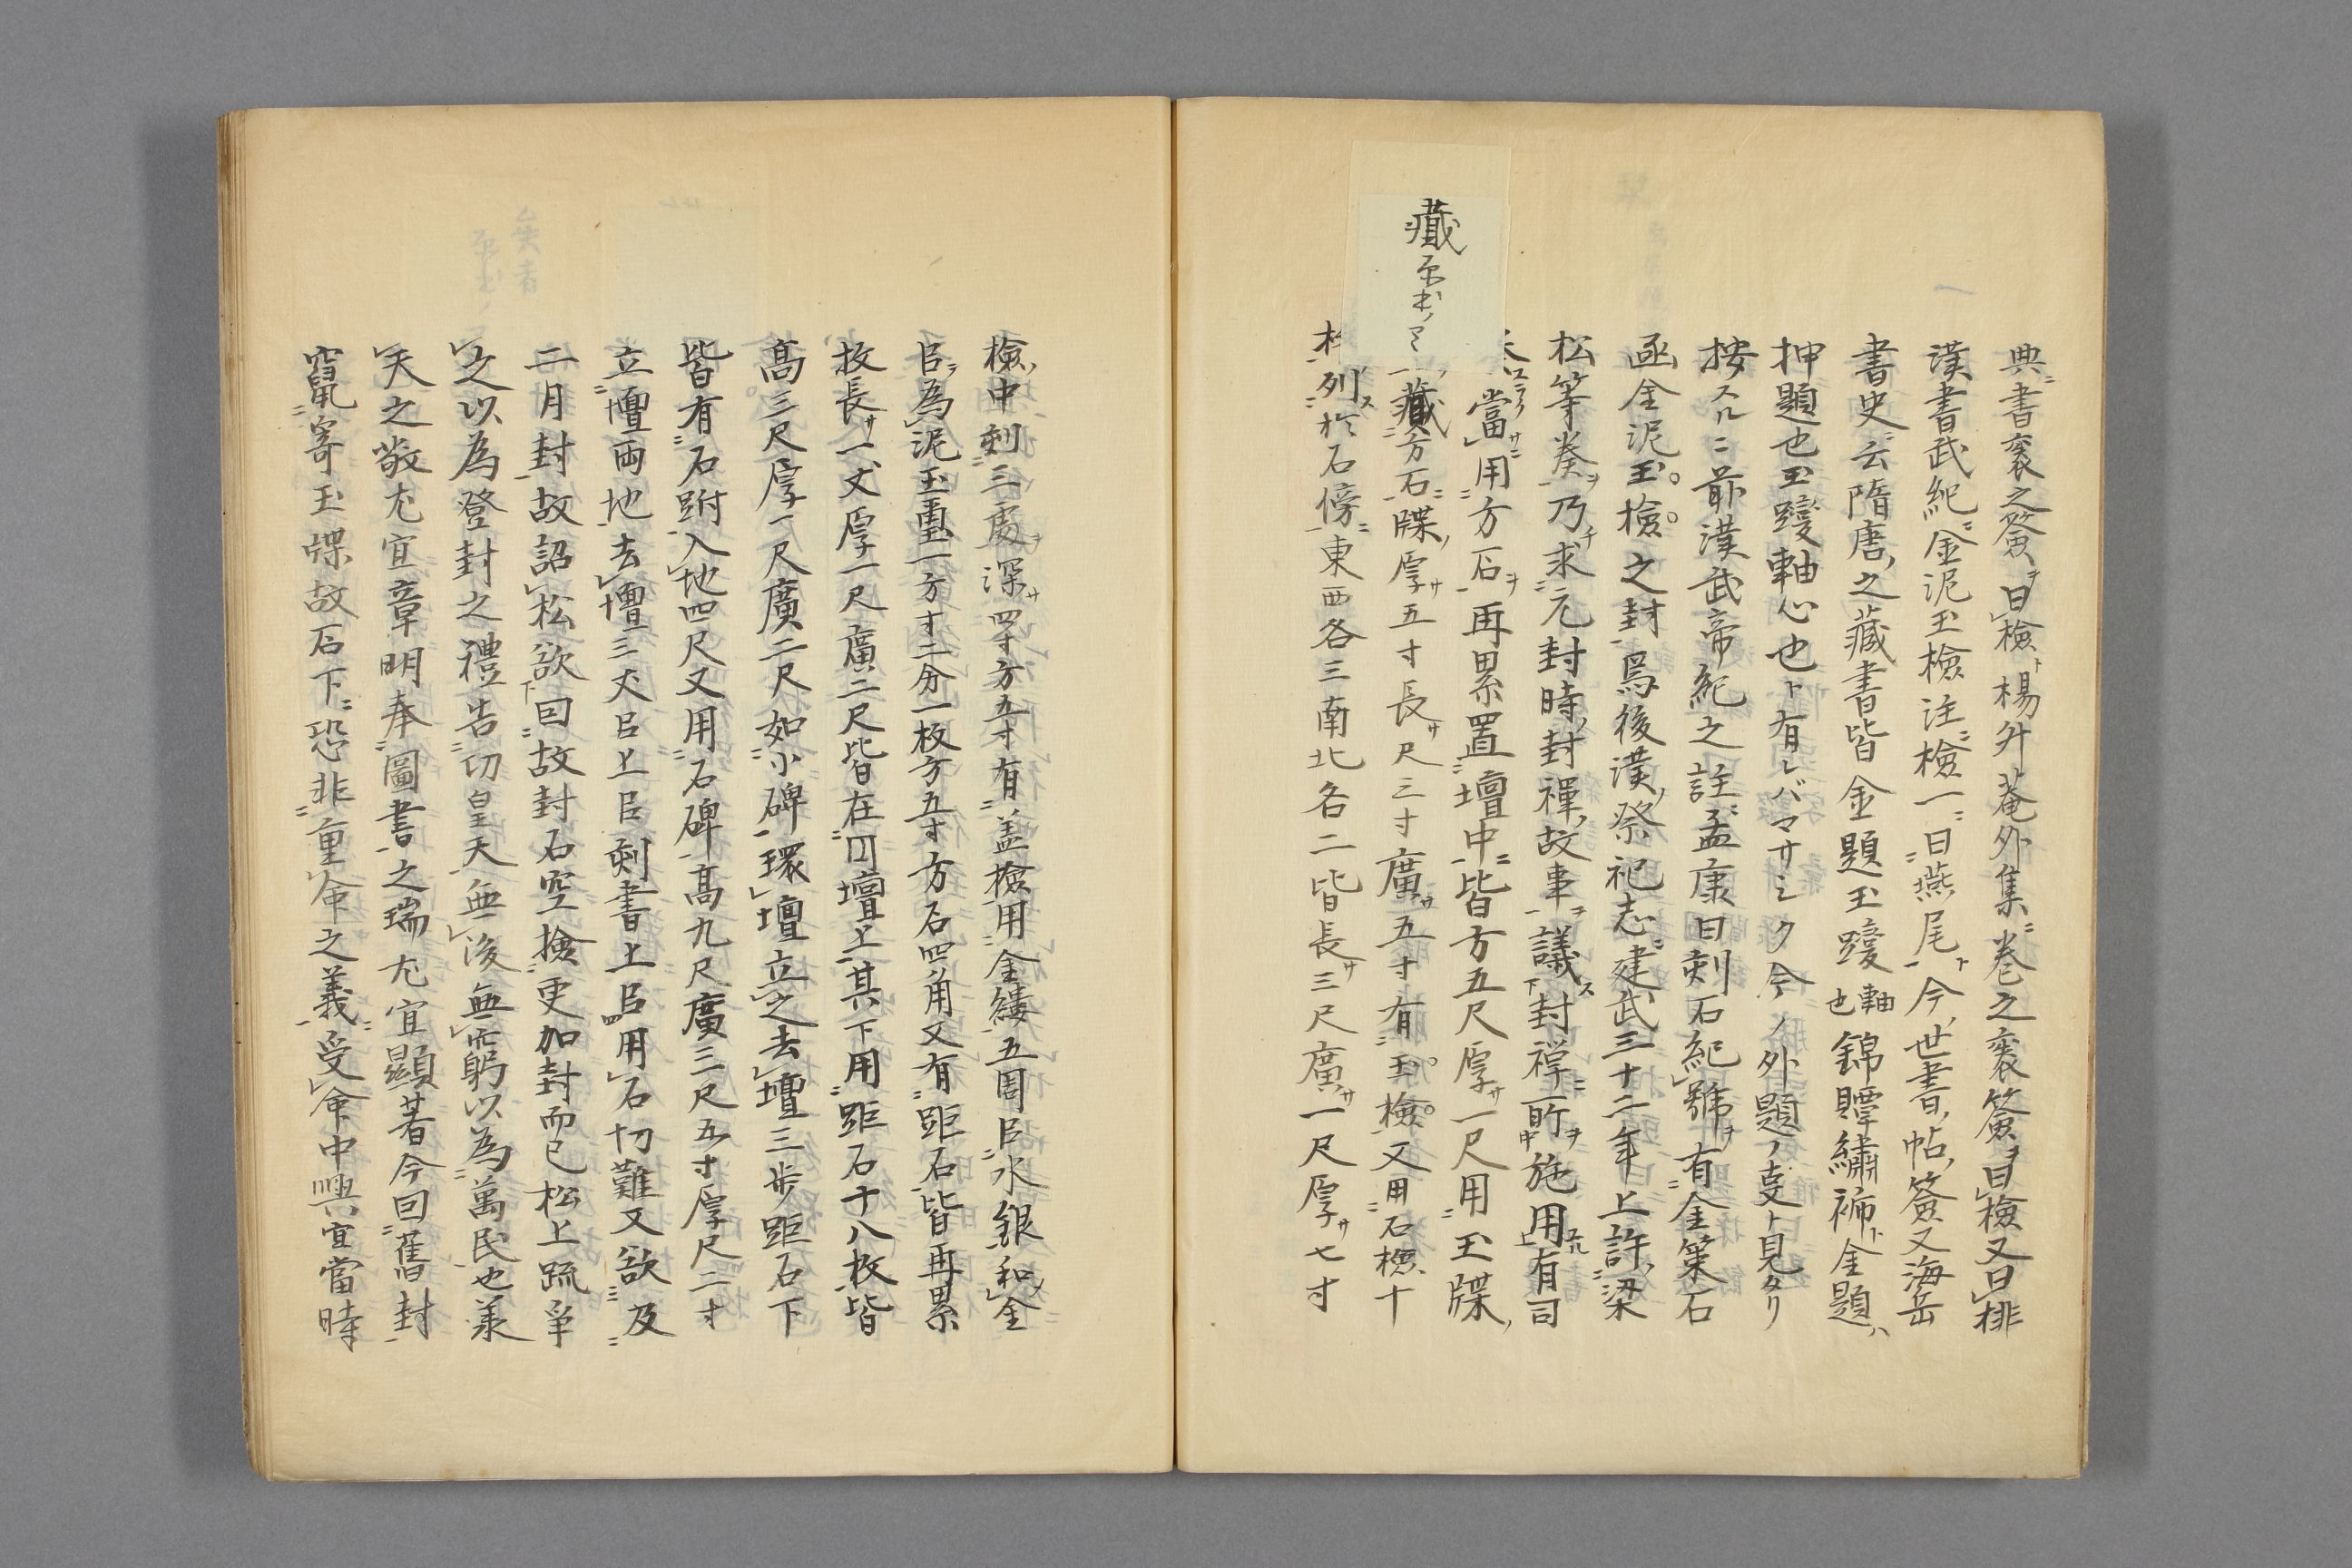 典ニ書袠之簽ヲ曰檢ト楊升菴外集ニ卷之袠簽ヲ曰檢又曰排
漢書武紀ニ金泥玉檢注ニ檢一ニ曰燕尾ト今ノ世書ノ帖ノ簽又海岳
書史ニ云隋唐ノ之藏書皆金題玉躞軸也錦贉繡褫ト金題ハ
押題也玉躞軸心也ト有レバマサシク今ノ外題ノ叓ト見タリ
按スルニ前漢武帝紀之註ニ孟康曰刻石紀號ヲ有金策石
函金泥玉檢之封焉後漢ノ祭祀志ニ建武三十二年上許ノ梁
松等奏ヲ乃チ求元封時ノ封禪ノ故事ヲ議ス封禪ニ所ヲ施用スル有司
當ニ用方石ヲ再累置壇中ニ皆方五尺厚サ一尺用玉牒ノ
藏方石ニ牒ノ厚サ五寸長サ尺三寸廣サ五寸有玉檢又用石檢十
列ス於石傍ニ東西各三南北各二皆長サ三尺廣サ一尺厚サ七寸
藏
檢ノ中刻三處ヲ深サ四寸方五寸有蓋檢用金縷五周㠯水銀和金
㠯為泥玉璽一方寸二分一枚方五寸方石四角又有距石皆再累
枚長サ一丈厚一尺廣二尺皆在円壇上其下用距石十八枚皆
高三尺厚一尺廣二尺如小碑環壇立之去壇三步距石下
皆有石跗入地四尺又用石碑高九尺廣三尺五寸厚尺二寸
立壇丙地去壇三丈㠯上㠯刻書上㠯用石切難又欲及
二月封故詔松欲因故封石空檢更加封而已松上疏爭
之以為登封之禮告功皇天無後無窮以為萬民也羕
天之敬尤宜章明奉圖書之瑞尤宜顯著今因舊封
竄寄玉牒故石下ニ恐非重命之義ニ受命中興宜當時